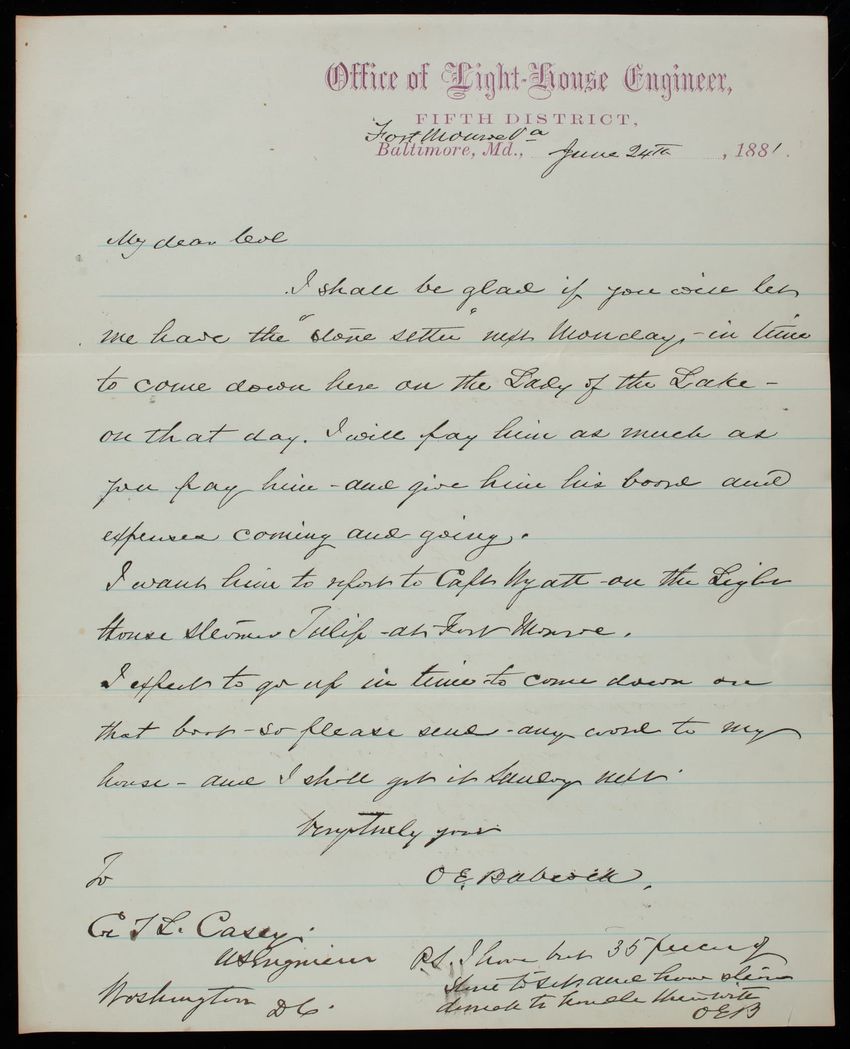 Office of Light-House Engineer,
FIFTH DISTRICT,
Fort Monroe Va
Baltimore, Md., June 24th, 1881.
My dear Col
I shall be glad if you will let
me have the "stone setter" next Monday, - in time
to come down here on the Lady of the Lake -
on that day. I will pay him as much as
you pay him - and give him his board and
expenses coming and going.
I want him to report to Capt Wyatt - on the Light
House steamer Tulip - at Fort Monroe.
I expect to go up in time to come down on
that boat - so please send - any word to my
house - and I shall get it Sunday next.
Very truly yours
O E Babcock.
To
Col T L. Casey.
US Engineers
Washington DC.
P.S. I have but 35 pieces of
stone to set and have
derrick to handle them with
OEB